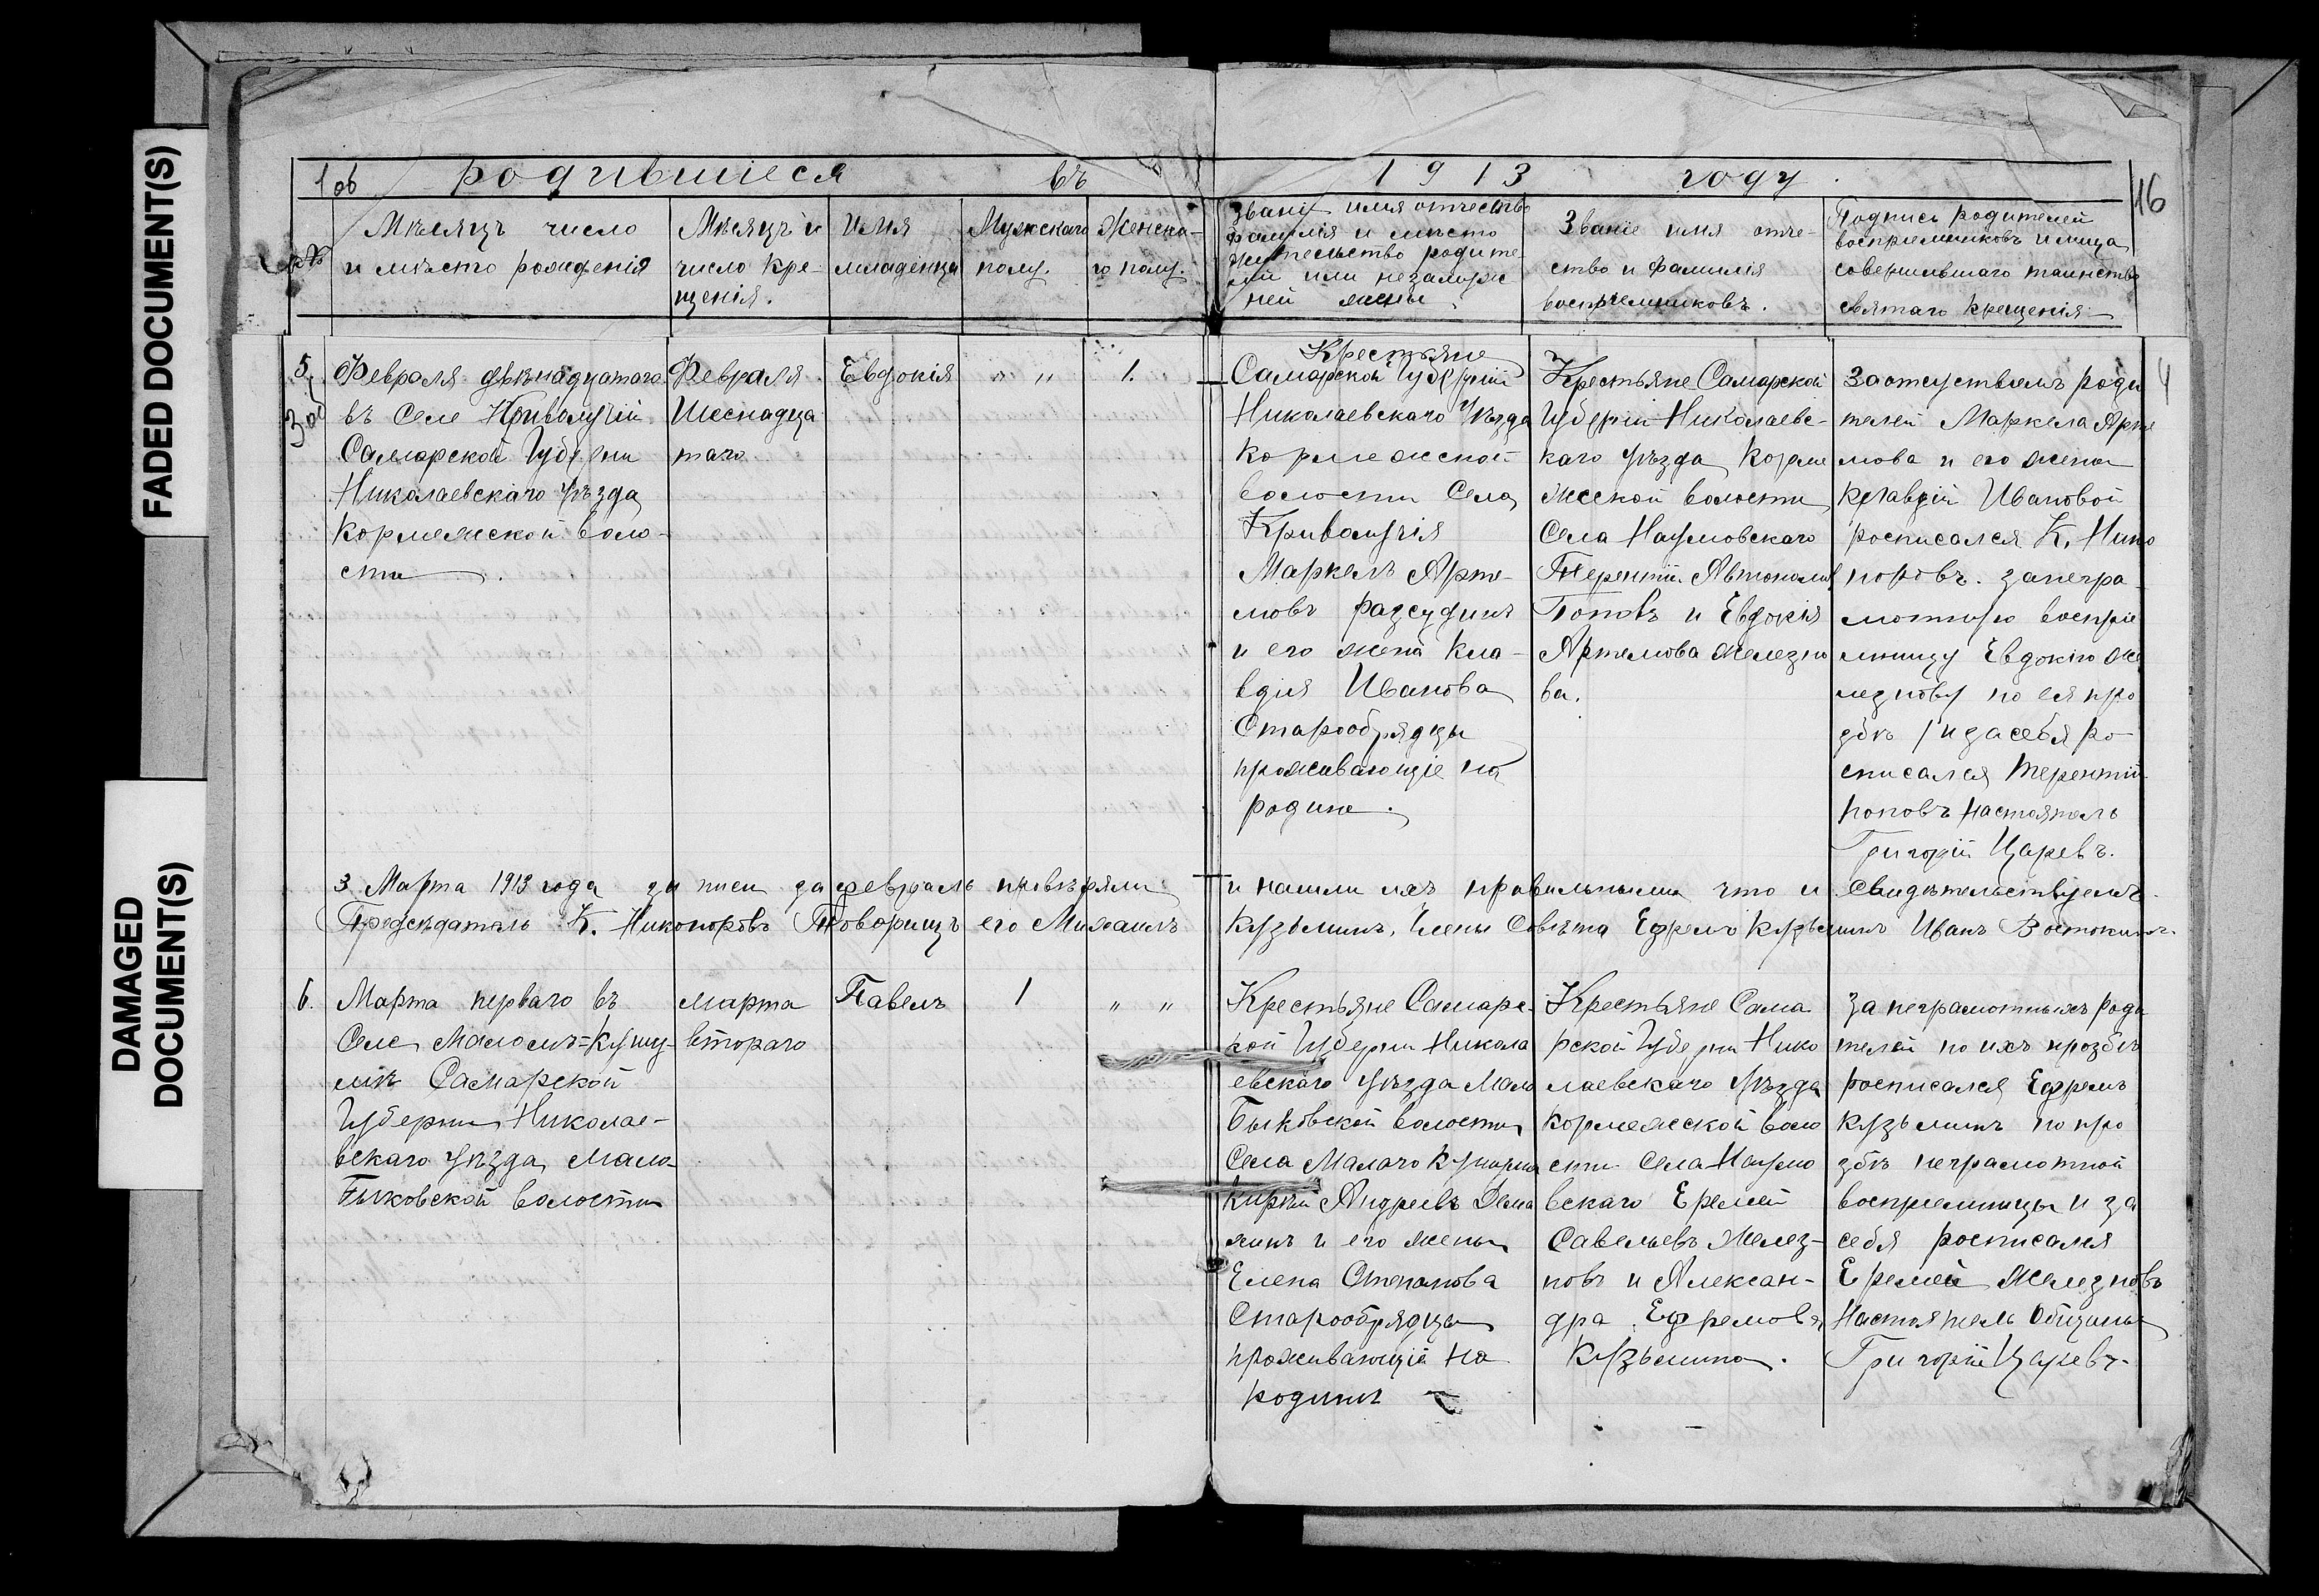 FADED DOCUMENT(S)
DAMAGED
DOCUMENT(S)
1об родившиеся въ 1913 году
16
Мѣсяцъ число
и мѣсто рожденія
Мѣсяцъ и
число кре-
щенія.
Имя
младенца
Мужскаго
полу.
Женска-
го полу.
Званіе имя отчество
фамилія и мѣсто
жительство родите
лій или незамуж
ней жены
Званіе имя отче-
ство и фамилія
воспріемниковъ.
Подпись родителей
воспріемниковъ и лица
совершившаго таинство
святаго крещенія
5.
3об
Февраля двѣнадцатаго
въ Селе Криволучій
Самарской Губерни
Николаевскаго Уѣзда
Кормежской воло-
сти.
Февраля
Шеснадца
таго
Евдокія
" "
1.
Крестьяне
Самарской Губерніи
Николаевскаго Уѣзда
Кормежской
волости Села
Криволучія
Маркелъ Арте-
мовъ Разсудинъ
и его жена Кла-
вдія Иванова
Старообрядцы
проживающіе на
родине.
Крестьяне Самарской
Губерніи Николаевс-
каго Уѣзда Корме
жской волости
Села Наумовскаго
Терентій Автономов
Поповъ и Евдокія
Артемова Железно
ва.
За отсуствіемъ роди
телей Маркела Арте
мова и его жена
Клавдій Ивановой
росписался К. Нико
норовъ. за негра
мотную воспріе
мницу Евдокію Же
лезнову по ея про
збѣ / и за себя ро-
списался Терентій
Поповъ Настоятель
Григорій Царевъ.
4
3 Марта 1913 года записи за февраль провѣряли и нашли ихъ правильными что и свидѣтельствуемъ.
Предсѣдатель К. Никоноровъ Товорищъ его Михаилъ Кузьминъ, Члены Совѣта Ефремъ Кузьминъ Иванъ Востокинъ.
6.
Марта перваго въ
Селе Маломъ=Кушу-
мѣ Самарской
Губерни Николае-
вскаго Уѣзда, Мало-
Быковской волости
марта
втораго
Павелъ
1
" "
Крестьяне Самарс-
кой Губерни Никола
евскаго Уѣзда Мало
Быковской волости
Села Малаго Кушума
Андреевъ
и его жены
Елена Степанова
Старообрядцы
проживающій на
родинѣ
Крестьяне Сама
рской Губерни Нико
лаевскаго Уѣзда
Кормежской воло
сти Села Наумо
вскаго Еремей
Савельевъ Желез-
новъ и Алексан-
дра Ефремова
Кузьмина.
За неграмотныхъ роди
телей по ихъ прозбѣ
росписался Ефремъ
Кузьминъ по про
збѣ неграмотной
воспріемницы и за
себя росписался
Еремей Железновъ
Настоятель Общины
Григорій Царевъ.